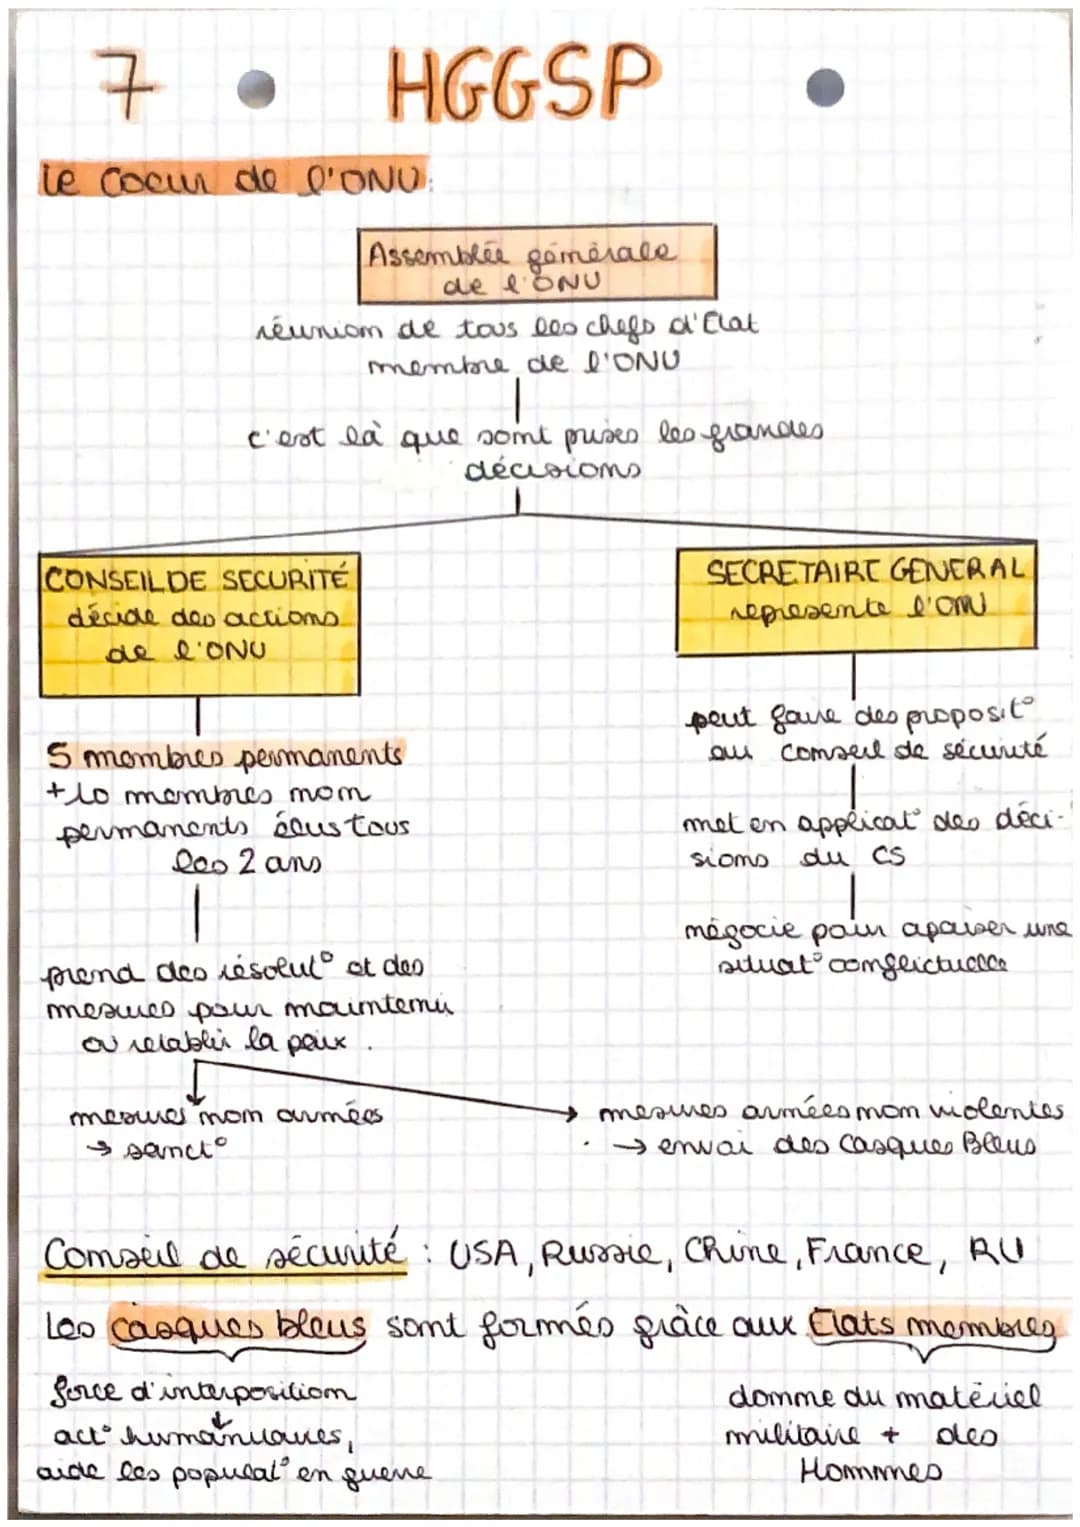 7 HGGSP
Le coeur de l'ONU:
Assemblée générale
de l'ONU
réunion de tous les chefs d'Etat
membre de l'ONU
c'est là que sont prises les grandes
décisions
CONSEIL DE SECURITÉ
décide des actions
de l'ONU
SECRETAIRE GENERAL
represente l'ONU
5 membres permanents
+10 membres non
permanents élus tous
les 2 ans
prend des résolut° et des
mesures pour maintenir
ou retablir la paix.
peut faire des proposit°
au conseil de sécurité
met en applicat° des déci-
sions du CS
négocie pour apaiser une
situat° conflictuelle
mesures non armées
→ sanct°
mesures armées non violentes
→ envoi des casques Bleus
Conseil de sécurité : USA, Russie, Chine, France, RU
Les casques bleus sont formés grâce aux Etats membres
force d'interposition
act° humanitaires,
aide les populat° en guerre
donne du matériel
militaire + des
Hommes